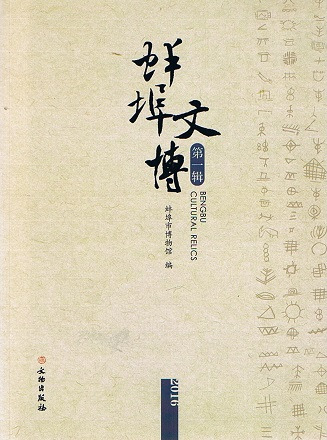 蚌埠文博
第一辑
BENGBU
CULTURAL RELICS
蚌埠市博物馆 编
文物出版社
2016